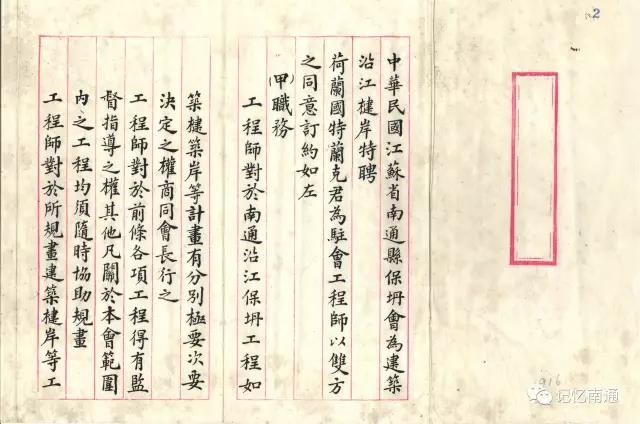 中華民國江蘇省南通縣保坍會為建築
沿江楗岸特聘
荷蘭國特蘭克君為駐會工程師以雙方
之同意訂約如左
(甲)職務
工程師對於南通沿江保坍工程如
築楗築岸等計畫有分別極要次要
決定之權商同會長行之
工程師對於前條各項工程得有監
督指導之權其他凡關於本會範圍
內之工程均須隨時協助規畫
工程師對於所規畫建築楗岸等工
2
1916
记忆南通